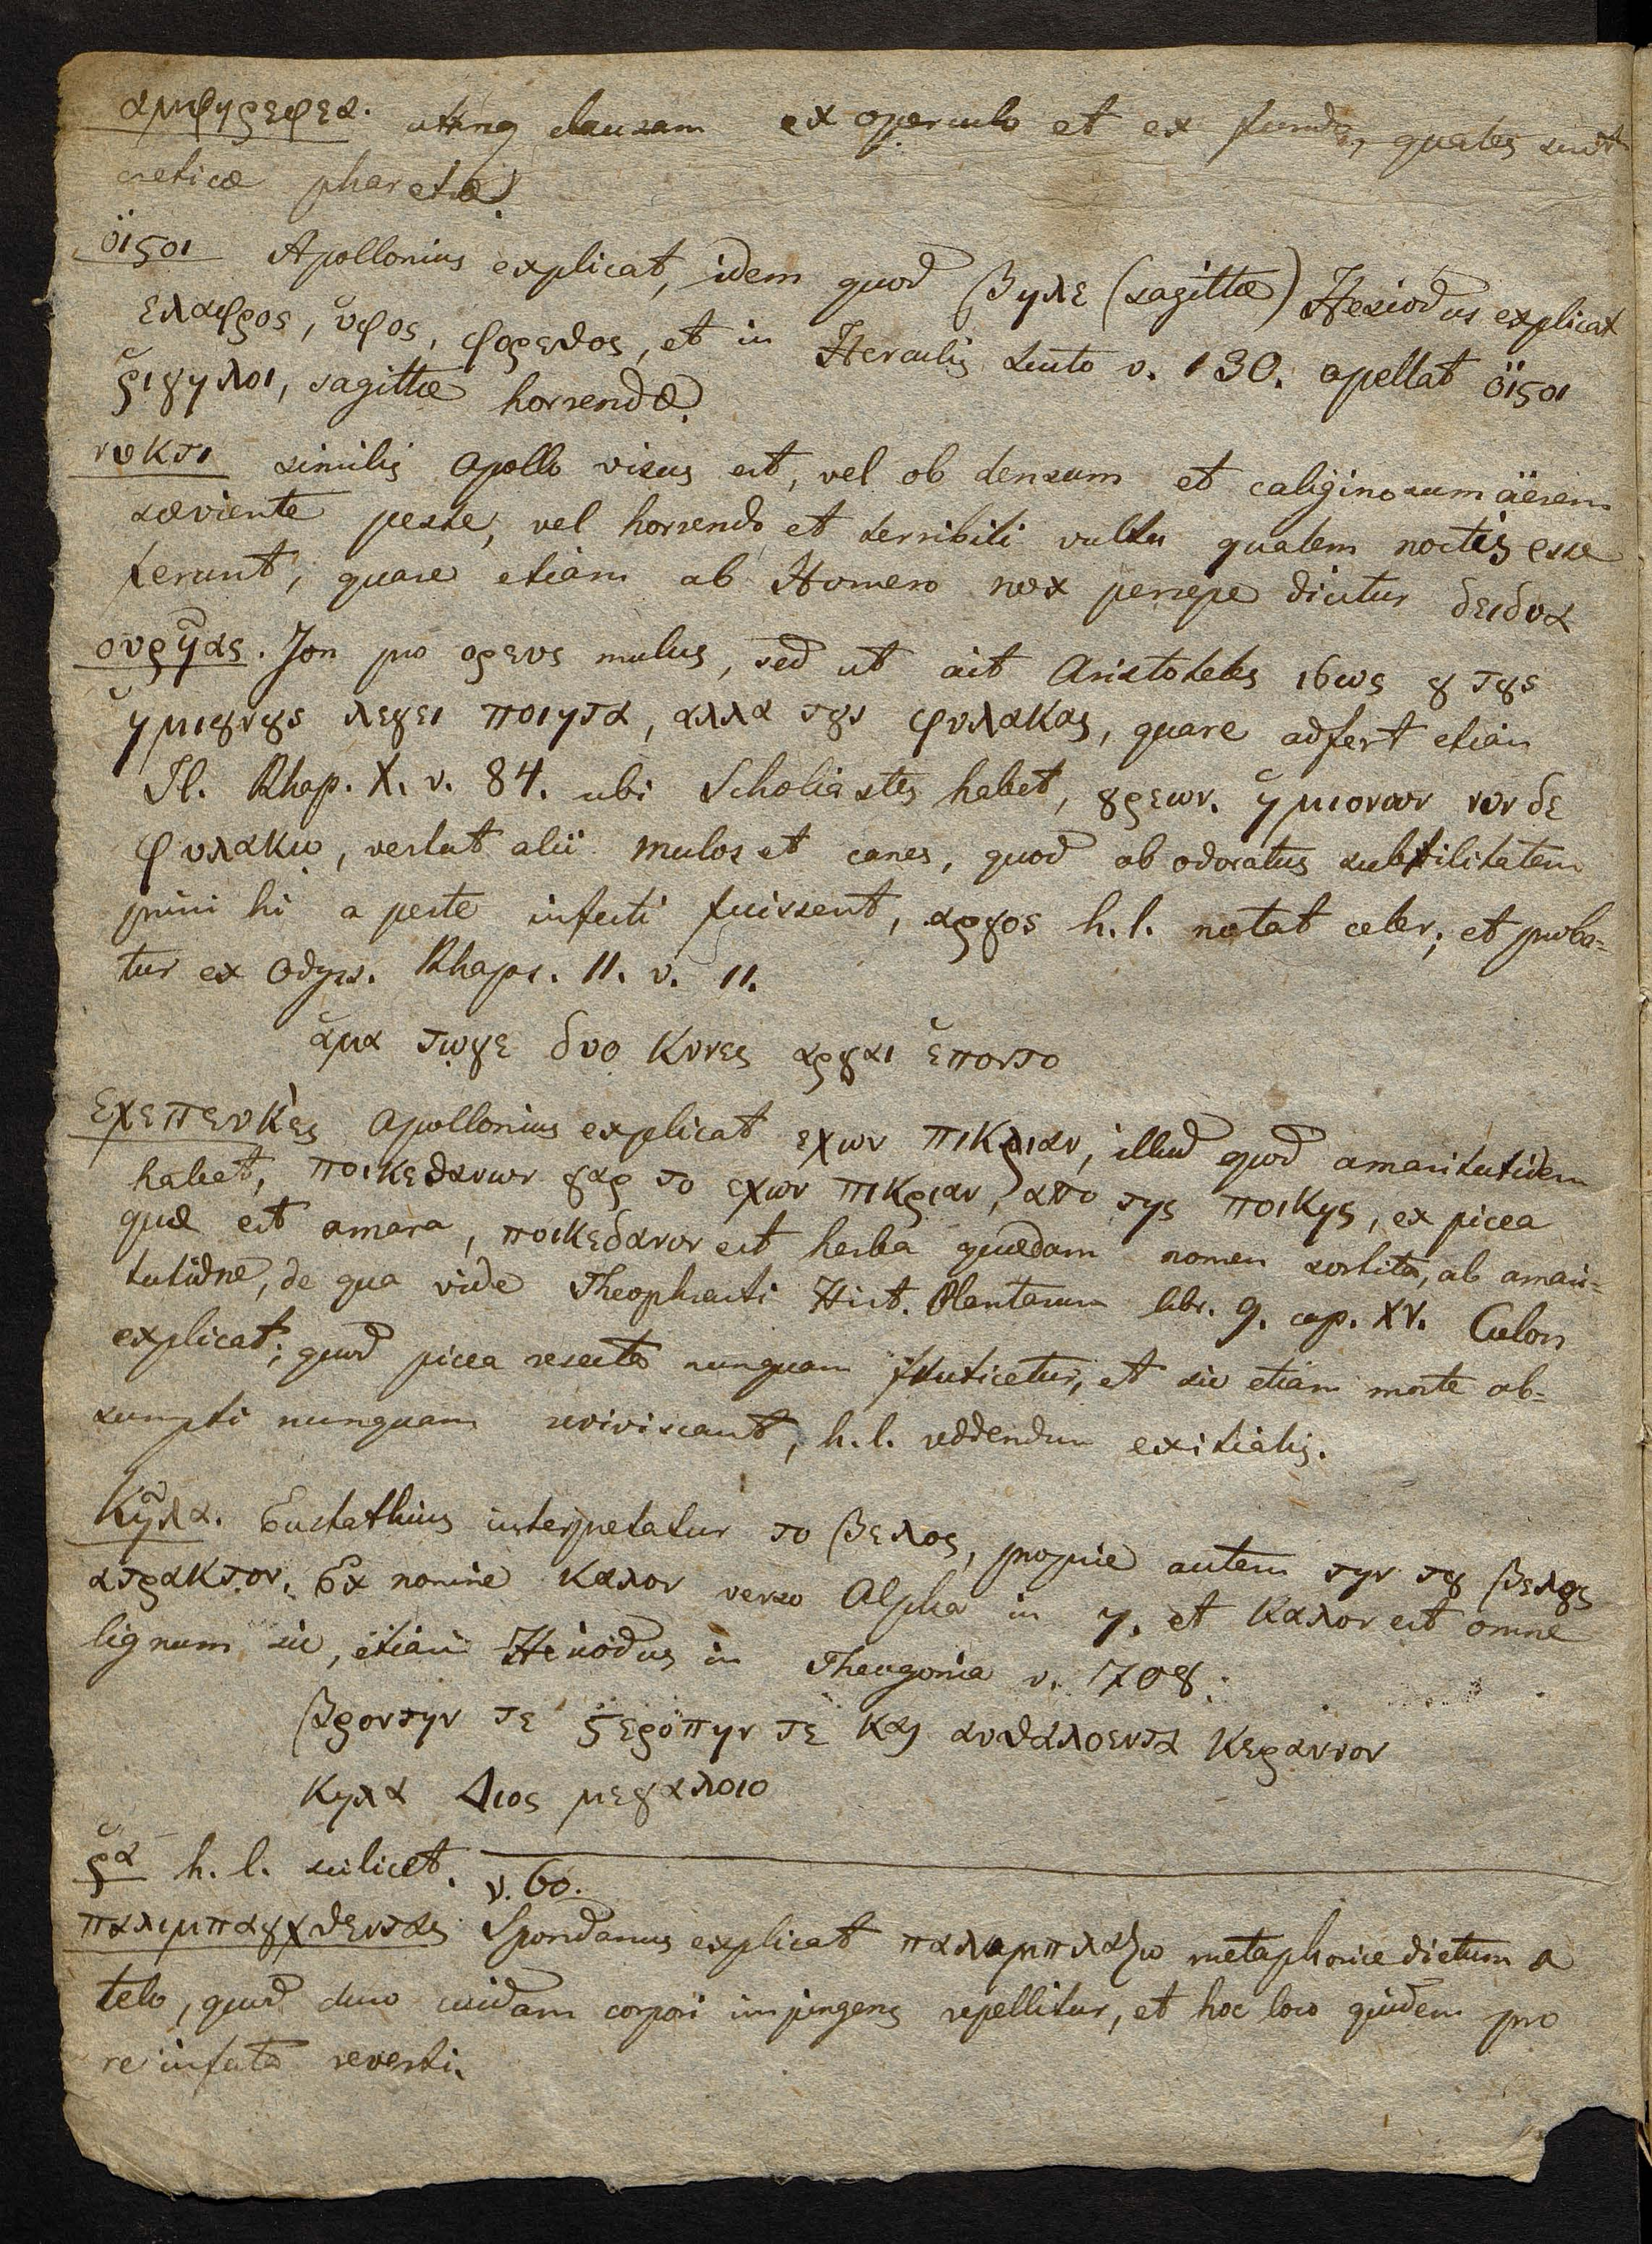 αμφηρεφεα. utrinq clausam ex operculo et ex fundo, quales sunt
creticæ pharetræ
ὀϊϛοι Apollonius explicat, idem quod βηλε (sagittæ) Hesiodus explicat
ελαφρος, υφος, et in Herculis scuto v. 130. apellat ὀϊϛοι
ῥιγηλοι, sagittæ horrendæ.
νυκτι similis Apollo visus est, vel ob densum et caliginosum äerem
sæviente peste, vel horrendo et terribili vultu qualem noctis esse
ferunt, quare etiam ab Homero nox persepe dicitur δειδυα
ουρηας. Jon pro ορευς mulus, sed ut ait Aristoteles ιϭως ȣ τȣς
ἡμιȣνȣς λεγει ποιητα, αλλα τȣς φυλακας, quare adfert etiam
Il. Rhap. X. v. 84. ubi Scholiastes habet, ȣρεων. ἡμιονων νυν δε
φυλακω, vertunt alii mulos et canes, quod ob odoratus subtilitatem
primi hi a peste infecti fuissent, αργος h. l. notat celer; et proba=
tur ex Odyss. Rhaps. 11. v. 11.
ἁμα τωγε δυο κυνες αργαι ἑποντο
εχεπευκὲς Apollonius explicat εχων πικριαν, illud quod amaritutidem
habet, ποικεδανων γαρ το εχων πικριαν, απο της ποικης, ex picea
quæ est amara, ποικεδανον est herba quædam nomen sortita, ab amari=
tutidne, de qua vide Theophrasti Hist. Plantarum libr. 9. cap. XV. Culon
explicat; quod picea resecta nunquam fruticetur, et sic etiam morte ab=
sumpti nunquam reviviscant, h. l. reddendum exitialis.
κῆλα. Eustathius interpretatur το βελος, proprie autem την τȣ βελȣς
ατρακτον. Ex nomine καλον verso Alpha in η. et καλον est omne
lignum sic, etiam Hesiodus in Theogonia v. 708.
βροντην τε ϛεροπην τε και αυθαλοεντα κεραυνον
κηλα Διος μεγαλοιο
ῥα h. l. scilicet.
v. 60.
παλιμπαγχθεντας Spondanus explicat παλαμπλαζω metaphorice dictum a
telo, quod duro cuidam corpori impingens repellitur, et hoc loco quidem pro
re infecta reverti.